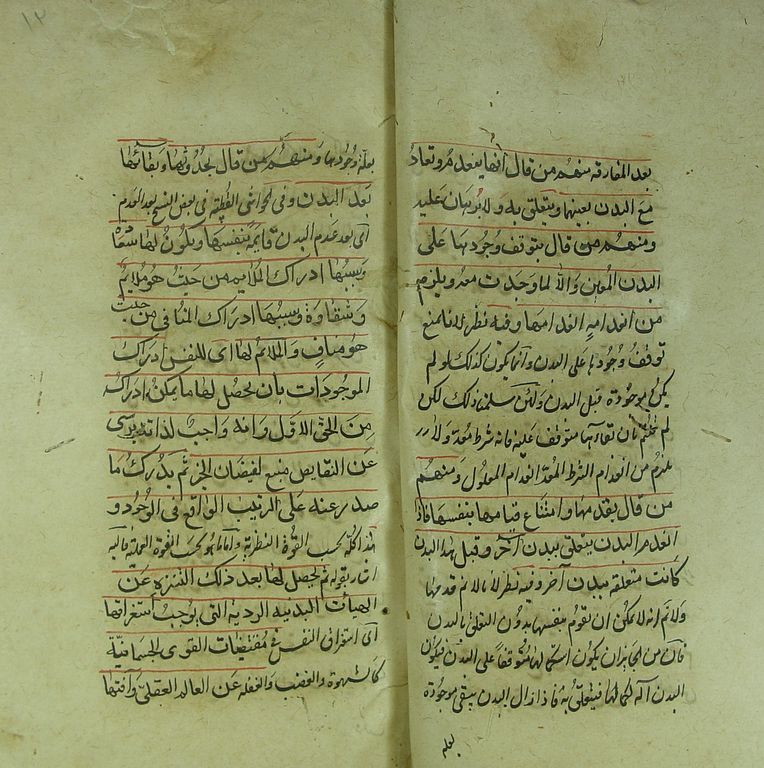 بعد المفارقة منهم من قال انها بعد مروتعاد
مع البدن بعينها ويتعلق به ولا برهان عليه
ومنهم من قال بتوقف وجودها على
البدن المعين والا لما وجدت معه ويلزم
من انعدامه انعدامها وفيه نظر لانا نمنع
توقف وجودها على البدن وانما يكون كذلك لو لم
يكن موجودة قبل البدن ولئن سلمنا ذلك لكن
لم قلتم بان بقاءها متوقف عليه فانه شرط معد ولا
يلزم من انعدام الشرط المعد انعدام المعلول ومنهم
من قال بقدمها وامتناع قيامها بنفسها فاذا
انعدم البدن يتعلق ببدن آخر وقبل هذا البدن
كانت متعلقة ببدن آخر وفيه نظر لانا لا نم قدمها
ولا نم انه لا يمكن ان تقوم بنفسها بدون التعلق بالبدن
فان من الجايز ان يكون استكمالها متوقفا على البدن فيكون
البدن آلة لكمالها فيتعلق به فاذا زال البدن يبقى موجودة
بعلة
١٢
بعلة وجودها ومنهم من قال بحدوثها وبقائها
بعد البدن وفي الحواشي القطبية في بعض النسخ بعد العدم
اى بعد عدم البدن قايمة بنفسها ويكون لها سعادة
وسببها ادراك الملايم من حيث هو ملايم
وشقاوة وسببها ادراك المنافى من حيث
هو مناف والملائم لها اى للنفس ادراك
الموجودات بان يحصل لها ما يمكن ادراكه
من الحق الاول وانه واجب لذاته برى
عن النقايص منبع لفيضان الخير ثم يدرك ما
صدر عنه على الترتيب الواقع في الوجود و
هذا كله بحسب القوة النظرية واما ما هو بحسب القوة العملية فاليه
اشار بقوله ثم يحصل لها بعد ذلك التنزه عن
الهيآت البدنية الردية التى يوجب استغراقها
اى استغراق النفس في مقتضيات القوى الجسمانية
كالشهوة والغضب والغفلة عن العالم العقلي وآفتها